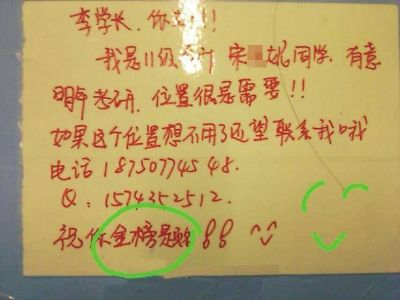 李学长，你好！！！
我是11级会计 宋 妮同学，有意
明年考研，位置很是需要！！
如果这个位置想不用了还望联系我哦
电话 18750774548.
Q：1574352512.
祝你金榜题名！！